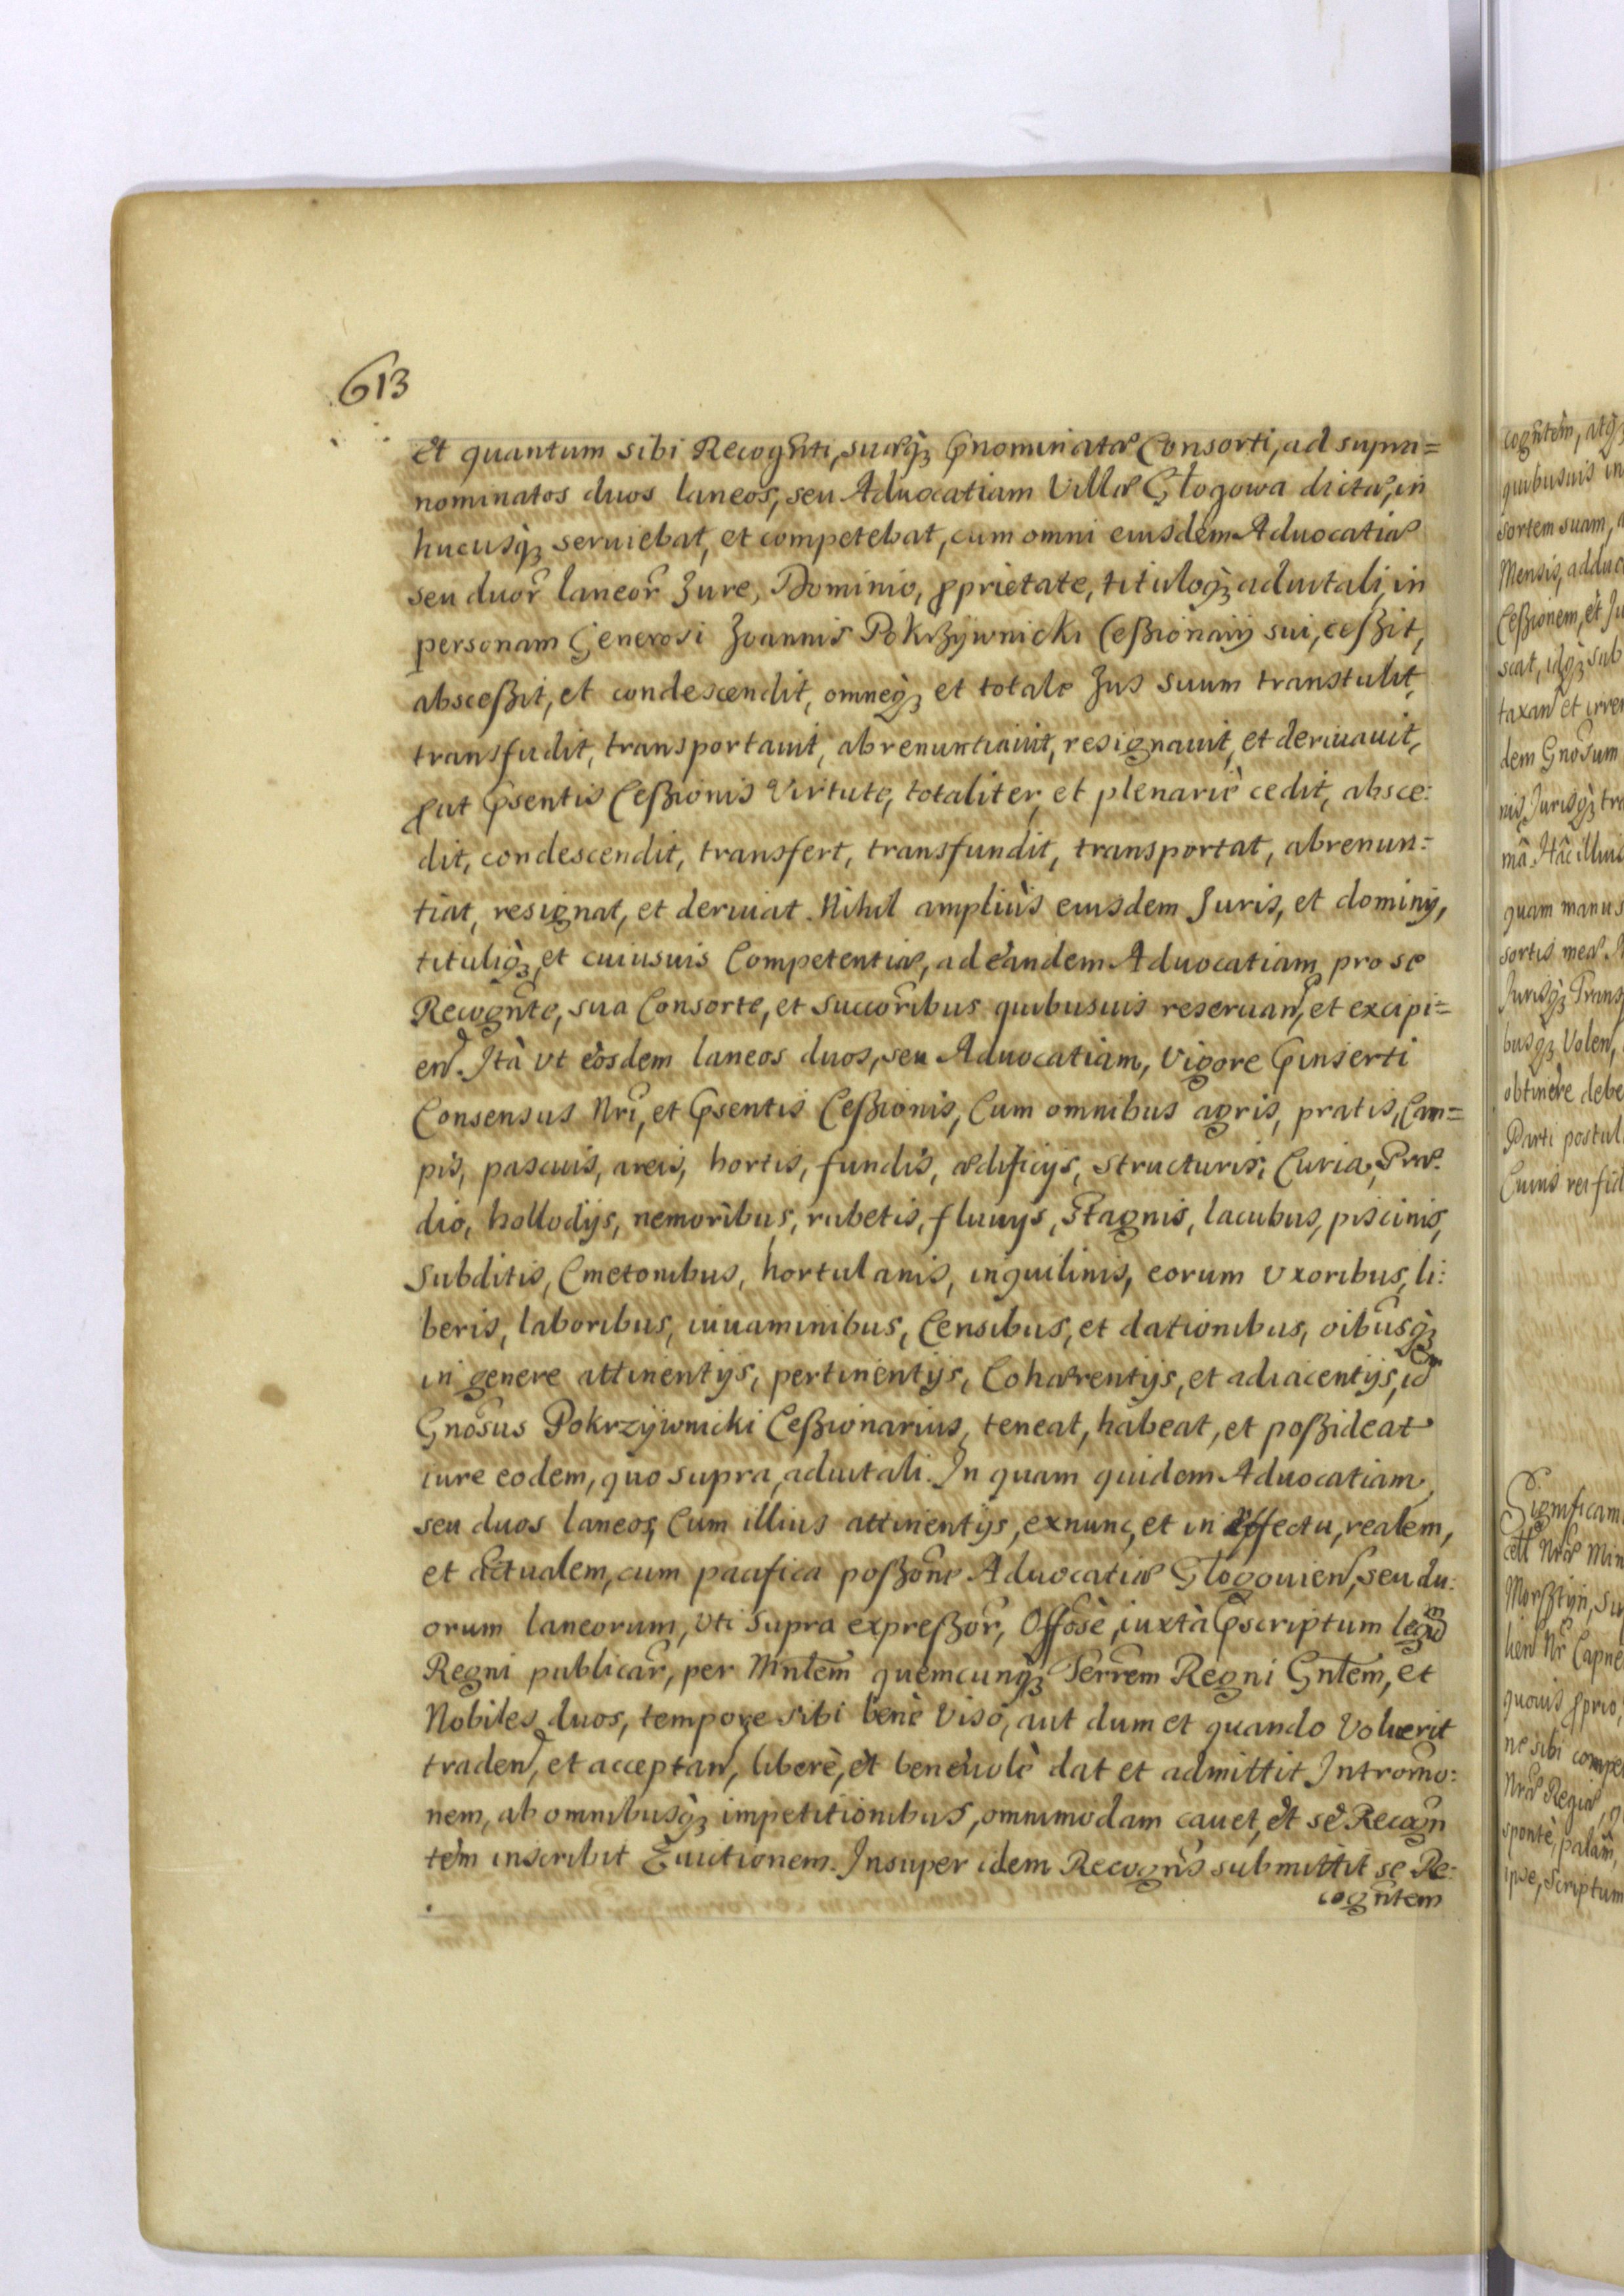 613
et quantum sibi Recognti, suæqꝫ Pnominatæ Consorti, ad supra=
nominatos duos laneos, seu Aduocatiam Villæ Głogowa dictæ, in
hucusqꝫ seruiebat, et competebat, cum omni eiusdem Aduocatiæ
seu duor laneor Jure, Dominio, ꝓprietate, tituloqꝫ aduitali, in
personam Generosi Joannis Pokrzywnicki Ceßionarij sui, ceßit,
absceßit, et condescendit, omneqꝫ et totale Jus suum transtulit,
transfudit, transportauit, abrenuntiauit, resignauit, et deriuauit,
ꝓut Psentis Ceßionis Virtute, totaliter, et plenariè cedit, absce:
dit, condescendit, transfert, transfundit, transportat, abrenun=
tiat, resignat, et deriuat. Nihil ampliùs eiusdem Juris, et dominij,
tituliqꝫ, et cuiusuis Competentiæ, ad eandem Aduocatiam pro se
Recognte, sua Consorte, et succoribus quibusuis reseruan, et excipi=
en. Ità vt eosdem laneos duos, seu Aduocatiam, Vigore Pinserti
Consensus Nri, et Psentis Ceßionis, Cum omnibus agris, pratis, Cam=
pis, pascuis, areis, hortis, fundis, ædificijs, structuris, Curia, Præ
dio, hollodijs, nemoribus, rubetis, fluuijs, Stagnis, lacubus, piscinis,
Subditis, Cmetonibus, hortulanis, inquilinis, eorum vxoribus, li:
beris, laboribus, iuuaminibus, Censibus, et dationibus, oibusqꝫ
in genere attinentijs, pertinentijs, Cohærentijs, et adiacentijs, idem
Gnosus Pokrzywnicki Ceßionarius, teneat, habeat, et poßideat
iure eodem, quo supra, aduitali. In quam quidem Aduocatiam,
seu duos laneos, Cum illius attinentijs, exnunc, et in effectu, realem,
et actualem, cum pacifica poßone Aduocatiæ Glogouien, seu du:
orum laneorum, vti supra expreßor, Offose, iuxtà Pscriptum legum
Regni publicar, per Mntem quemcunqꝫ Terrem Regni Gntem, et
Nobiles duos, tempore sibi benè Viso, aut dum et quando Voluerit
traden, et acceptan, liberè, et beneuolè dat et admittit Intromo:
nem, ab omnibusqꝫ impetitionibus, omnimodam cauet, et se Recogn
tem inscribit Euictionem. Insuper idem Recogns submittit se Re:
cogntem